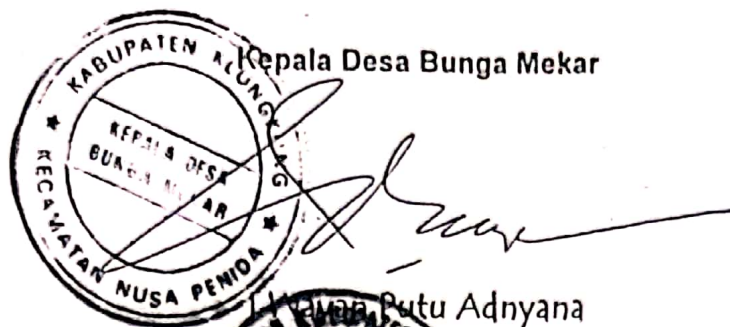 Kepala Desa Bunga Mekar
KABUPATEN KLUNGKUNG
KEPALA DESA
BUNGA MEKAR
KECAMATAN NUSA PENIDA
I Wayan Putu Adnyana